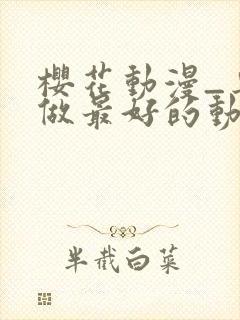 櫻花動漫_
做最好的動
半截白菜